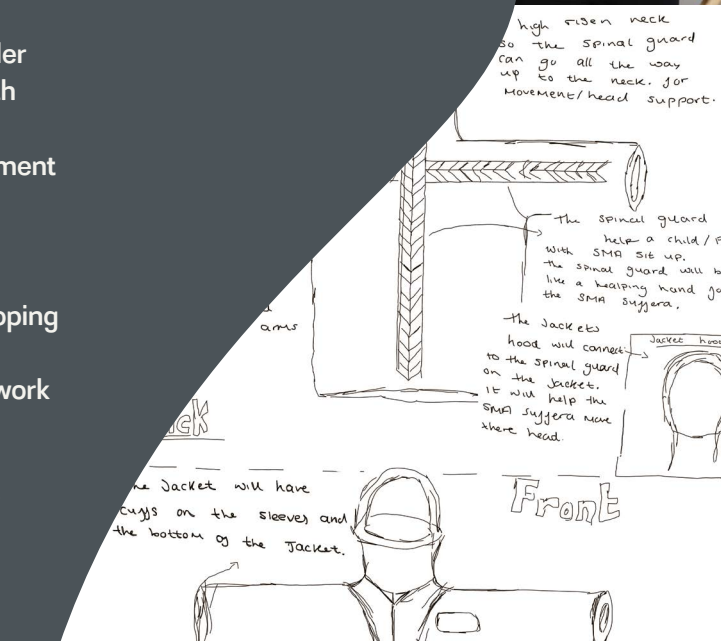 high risen neck
so the spinal guard
can go all the way
up to the neck. for
movement/head support.
The spinal guard
help a child/
with SMA sit up.
the spinal guard will
like a healping hand
the SMA suffera.
arms
The Jackets
hood will connect
to the spinal guard
on the Jacket.
It will help the
SMA suffera move
there head.
Jacket
Jacket will have
cuffs on the sleeves and
the bottom of the Jacket.
Front